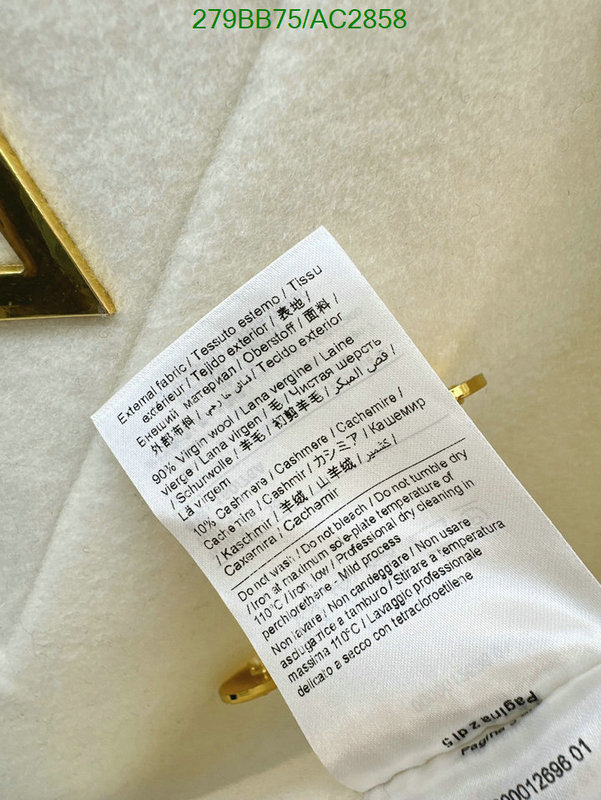 279BB75/AC2858
External fabric / Tessuto esterno / Tissu
extérieur / Tejido exterior / 表地 /
Внешний материал / Oberstoff / 面料 /
外部布料 / Tecido exterior
90% Virgin wool / Lana vergine / Laine
vierge / Lana virgen / 毛 / Чистая шерсть
/ Schurwolle / 羊毛 / 初剪羊毛 /
Lã virgem
10% Cashmere / Cashmere / Cachemire /
Cachemira / Cashmir / カシミア / Кашемир
/ Kaschmir / 羊绒 / 山羊绒 / كشمير /
Caxemira / Cachemir
Do not wash / Do not bleach / Do not tumble dry
/ Iron at maximum sole-plate temperature of
110°C / Iron low / Professional dry cleaning in
perchlorethane - Mild process
Non lavare / Non candeggiare / Non usare
asciugatrice a tamburo / Stirare a temperatura
massima 110°C / Lavaggio professionale
delicato a secco con tetracloroetilene
Pagina 2 di 5
00012696 01